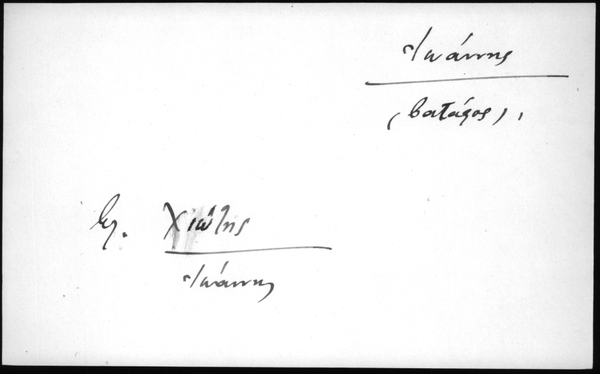 Ἰωάννης
(Βατάζος),
Βλ. Χιώτης
Ἰωάννης